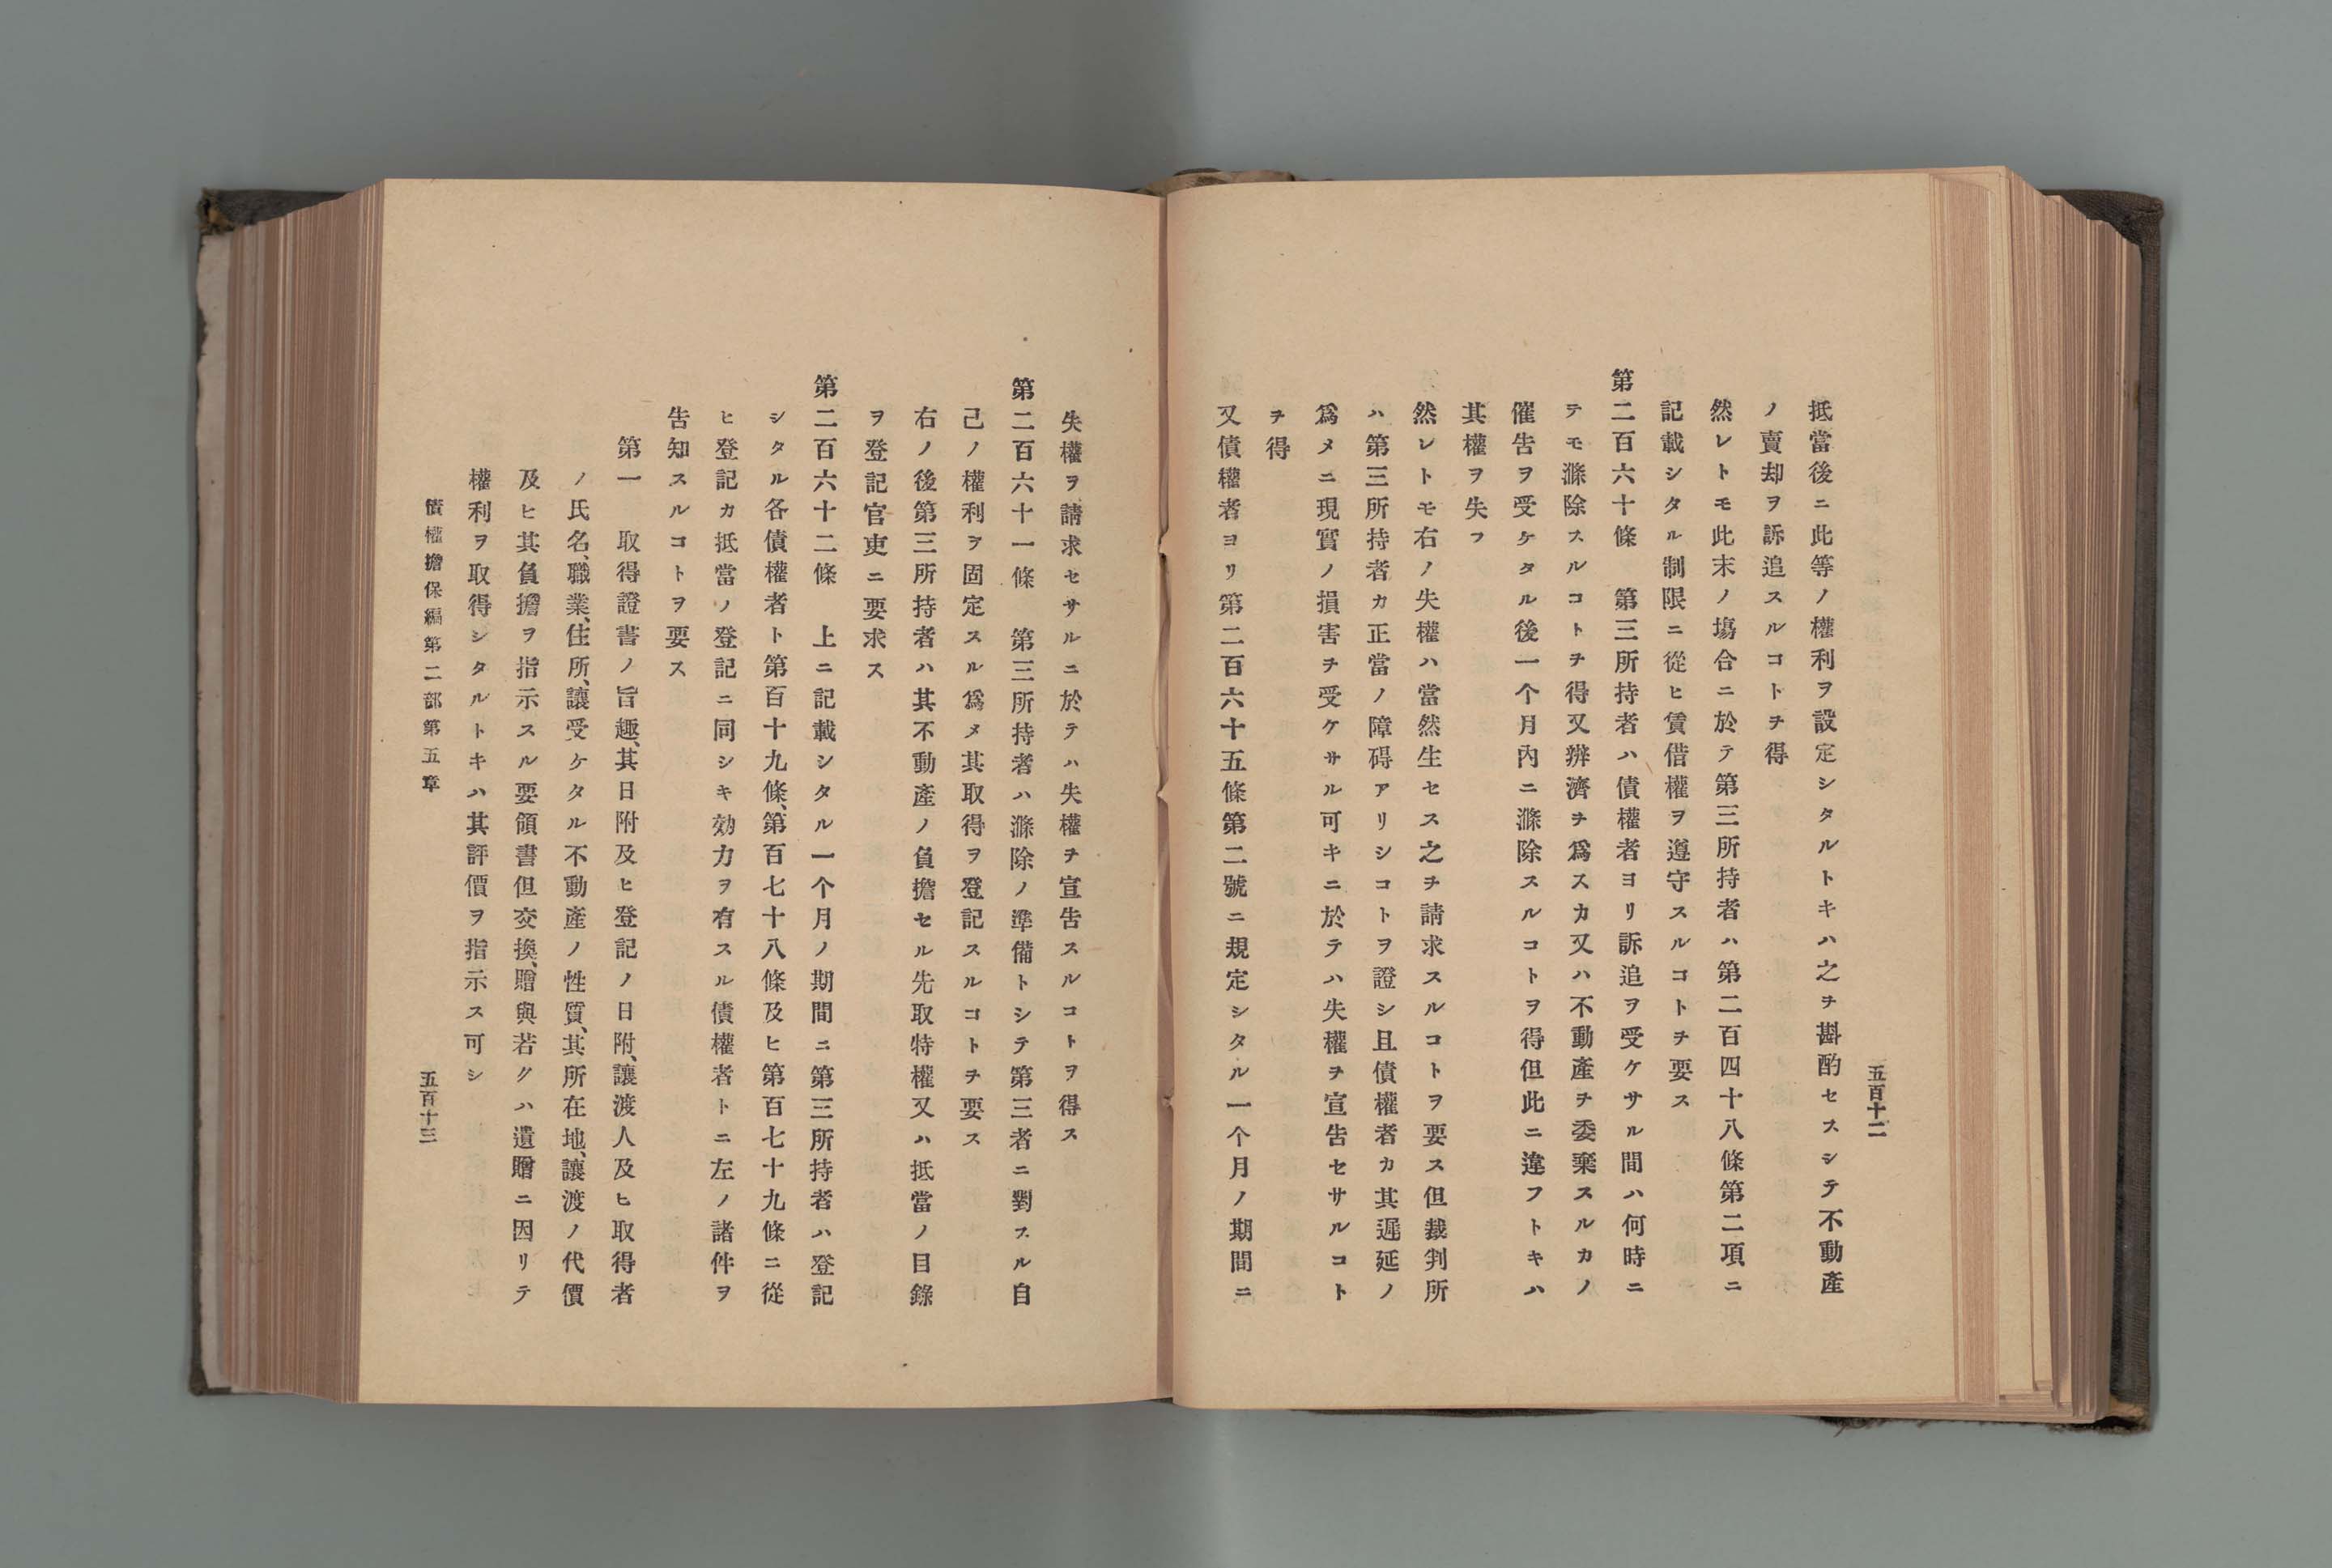 五百十二
抵當後ニ此等ノ權利ヲ設定シタルトキハ之ヲ斟酌セスシテ不動產
ノ賣却ヲ訴追スルコトヲ得
然レトモ此末ノ塲合ニ於テ第三所持者ハ第二百四十八條第二項ニ
記載シタル制限ニ從ヒ賃借權ヲ遵守スルコトヲ要ス
第二百六十條　第三所持者ハ債權者ヨリ訴追ヲ受ケサル間ハ何時ニ
テモ滌除スルコトヲ得又辨濟ヲ爲スカ又ハ不動產ヲ委棄スルカノ
催告ヲ受ケタル後一个月內ニ滌除スルコトヲ得但此ニ違フトキハ
其權ヲ失フ
然レトモ右ノ失權ハ當然生セス之ヲ請求スルコトヲ要ス但裁判所
ハ第三所持者カ正當ノ障碍アリシコトヲ證シ且債權者カ其遲延ノ
爲メニ現實ノ損害ヲ受ケサル可キニ於テハ失權ヲ宣告セサルコト
ヲ得
又債權者ヨリ第二百六十五條第二號ニ規定シタル一个月ノ期間ニ
失權ヲ請求セサルニ於テハ失權ヲ宣告スルコトヲ得ス
第二百六十一條　第三所持者ハ滌除ノ準備トシテ第三者ニ對スル自
己ノ權利ヲ固定スル爲メ其取得ヲ登記スルコトヲ要ス
右ノ後第三所持者ハ其不動產ノ負擔セル先取特權又ハ抵當ノ目錄
ヲ登記官吏ニ要求ス
第二百六十二條　上ニ記載シタル一个月ノ期間ニ第三所持者ハ登記
シタル各債權者ト第百十九條、第百七十八條及ヒ第百七十九條ニ從
ヒ登記カ抵當ノ登記ニ同シキ効力ヲ有スル債權者トニ左ノ諸件ヲ
告知スルコトヲ要ス
第一　取得證書ノ旨趣、其日附及ヒ登記ノ日附、讓渡人及ヒ取得者
ノ氏名、職業、住所、讓受ケタル不動產ノ性質、其所在地、讓渡ノ代價
及ヒ其負擔ヲ指示スル要領書但交換、贈與若クハ遺贈ニ因リテ
權利ヲ取得シタルトキハ其評價ヲ指示ス可シ
債權擔保編第二部第五章
五百十三